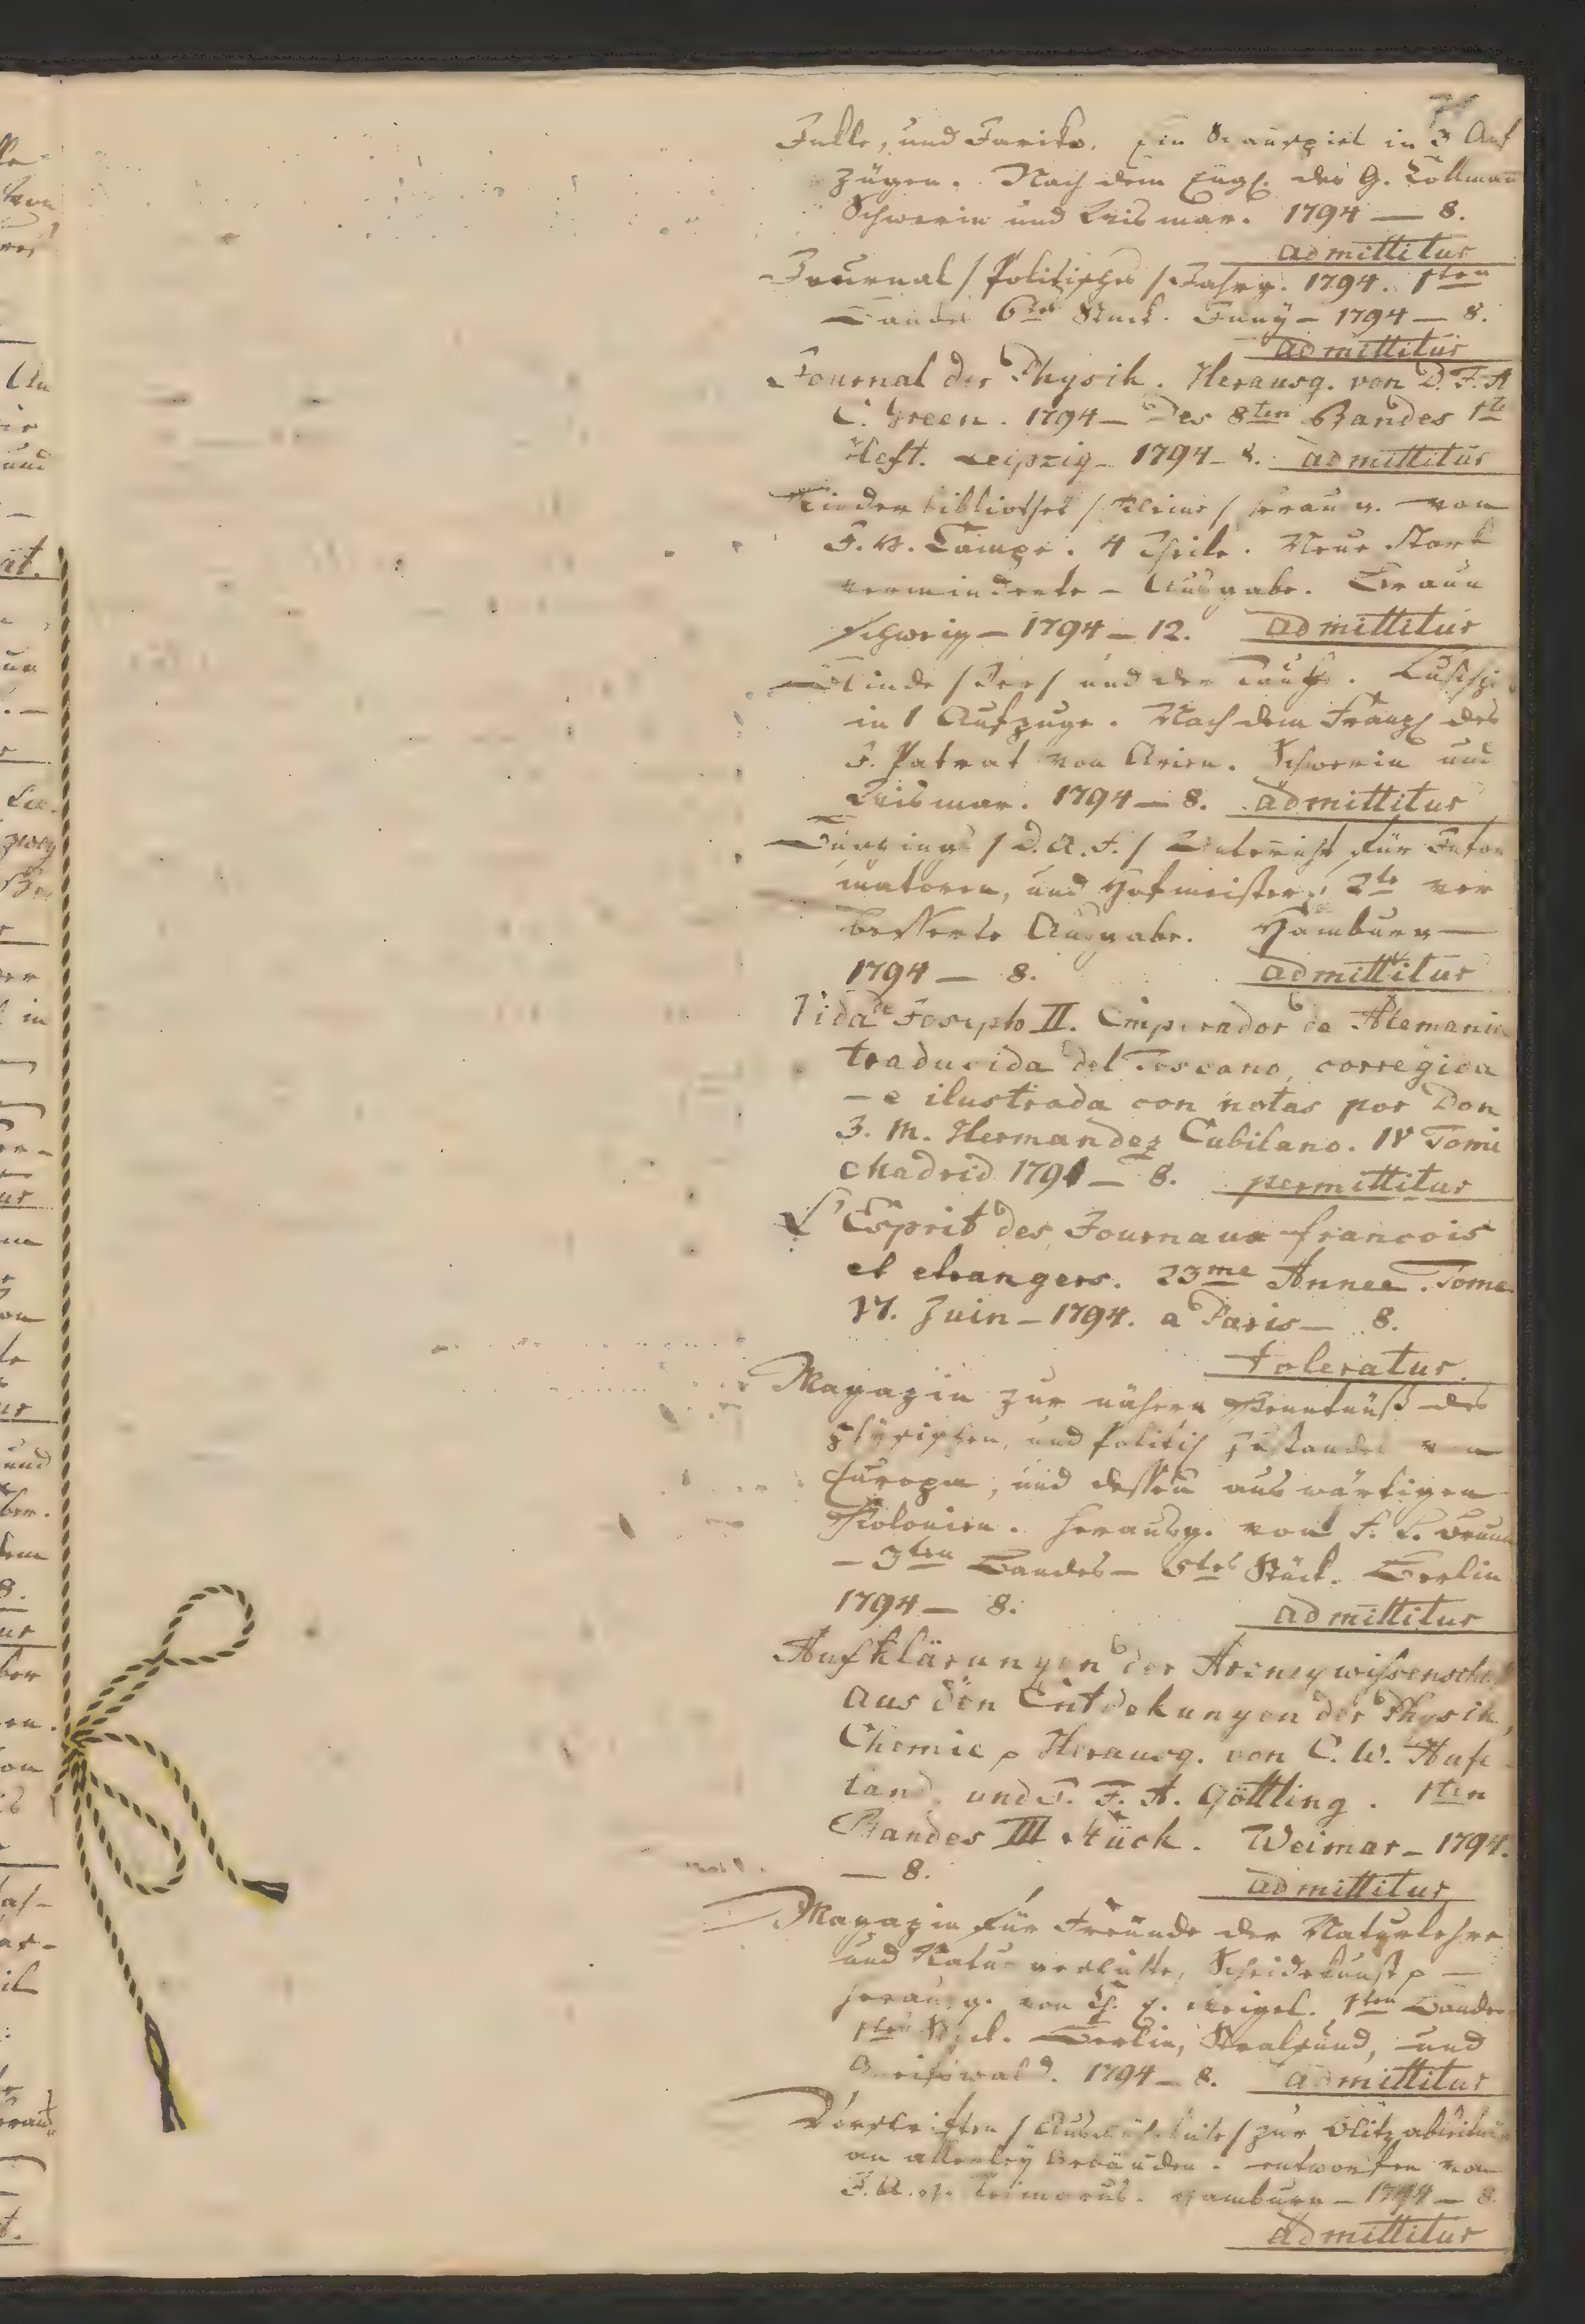 Jnkle, und Jariko. Ein Schauspiel in 3 Auf
zügen. Nach dem Engl. des G. Collman
Schwerin und Wismar. 1794 — 8.
admittitur
Journal / Politisches / Jahrg. 1794. 1ten
Bandes 6tes Stück. Juny — 1794 — 8.
admittitur
Journal der Physik. Herausg. von D. F. A
C. Green. 1794 — Des 8ten Bandes 1te
Heft. Leipzig — 1794 — 8. admittitur
Kinderbibliothek / Kleine / herausg. von
J. H. Campe. 4 Theile. Neue stark
verminderte — Ausgabe. Braun
schweig — 1794 — 12. admittitur
Blinde / Der / und der Taube. Lustsp.
in 1 Aufzuge. Nach dem Franz. des
J. Patrat von Arien. Schwerin und
Wismar. 1794 — 8. admittitur
/ D. A. F. / Unterricht für Infor
matoren, und Hofmeister. 2te ver
besserte Ausgabe. Hamburg —
1794 — 8. admittitur
Vida de Josepho II. Emperador de Alemania
traducida del Toscano, corregida
— e ilustrada con notas por Don
J. M. Hermandez Cubilano. IV Tomi
Madrid 1791 — 8. permittitur
L'Esprit des Journaux francois
et etrangers. 23me Annee. Tome
VI. Juin — 1794. a Paris — 8.
toleratur.
Magazin zur nähern Kenntnüß des
physischen, und politisch Zustandes von
Europa, und dessen auswärtigen
Kolonien. herausg. von F. L. Brunn
— 3ten Bandes — 5tes Stück. Berlin
1794 — 8. admittitur
Aufklärungen der Arzneywissensch.
aus den Entdekungen der Physik,
Chemie p Herausg. von C. W. Hufe
land, und J. F. A. Göttling. 1ten
Bandes III Stück. Weimar — 1794.
— 8. admittitur
Magazin für Freunde der Naturlehre
und Naturgeschichte, Scheidekunst p —
herausg. von C. E. Weigel. 1ten Bandes
1tes Stück. Berlin, Stralsund, und
Greifswald. 1794 — 8. admittitur
Vorschriften / Ausführliche / zur Blitzableitung
an allerley Gebäuden. entworfen von
J. A. H. Reimarus. Hamburg — 1794 — 8.
admittitur